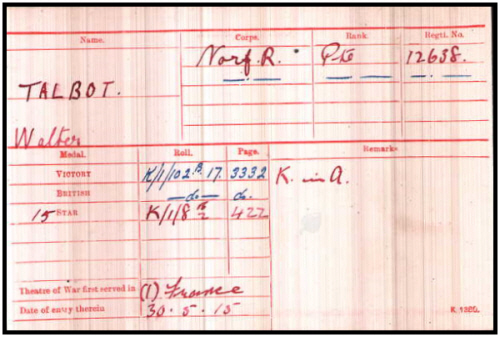 Name. Corps. Rank. Regtl. No.
TALBOT. Norf. R. Pte 12638.
Walter
Medal. Roll. Page. Remarks
VICTORY K/1/102 B 17. 3332 K. in A.
BRITISH —do— do.
15 STAR K/1/8 422
Theatre of War first served in (1) France
Date of entry therein 30.5.15 K. 1380.